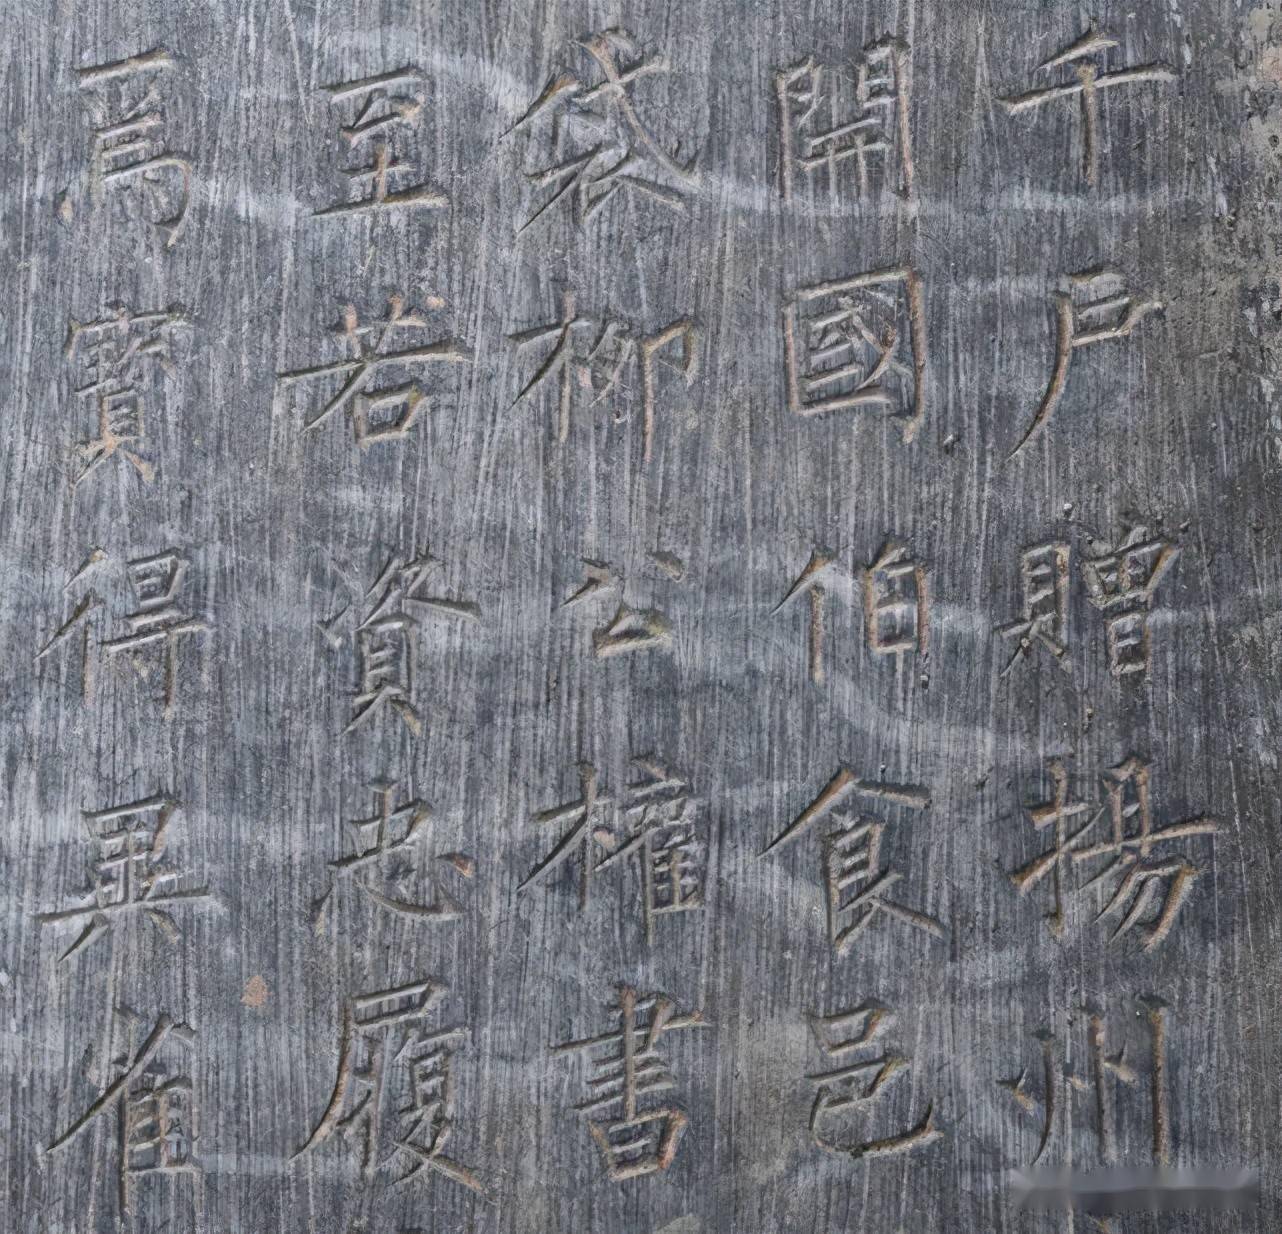 千戶贈揚州
開國伯食邑
袋柳公權書
至若資忠履
焉寶得異隹